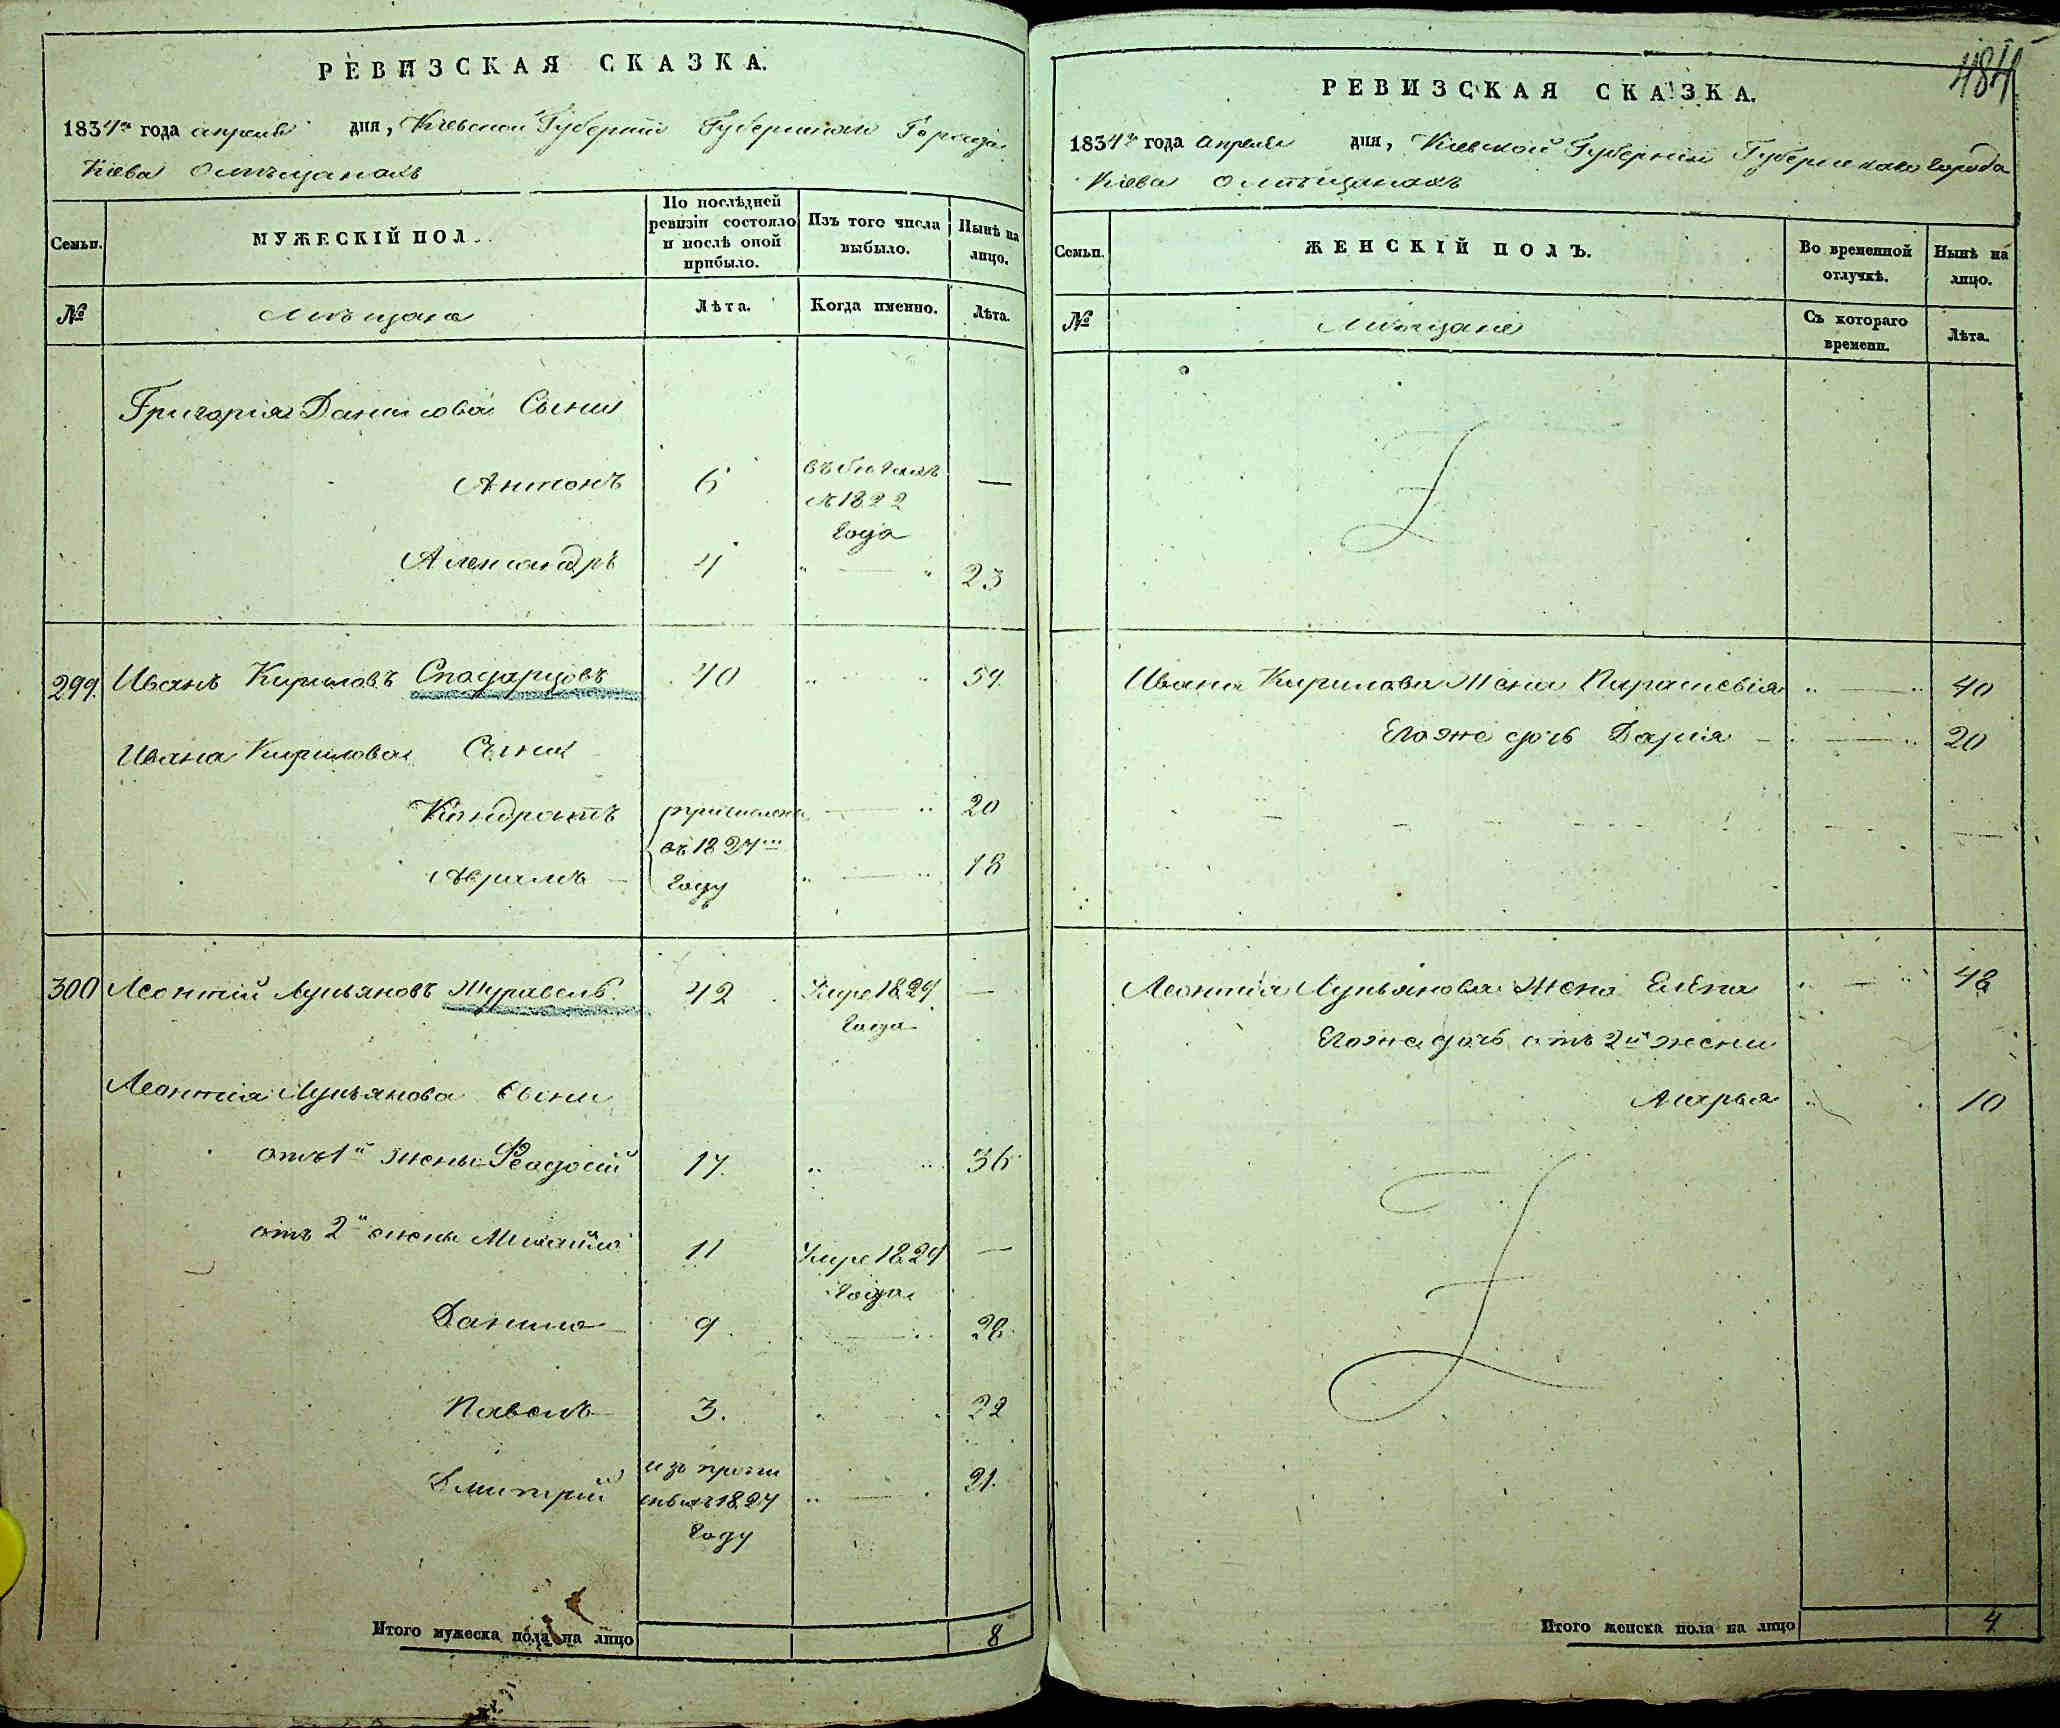 РЕВИЗСКАЯ СКАЗКА.
1834го года апреля дня, Кіевской Губерніи Губернскаго Города
Кіева о мѣщанахъ
Семьи.
МУЖЕСКІЙ ПОЛ.
По послѣдней ревизіи состояло и послѣ оной прибыло.
Изъ того числа выбыло.
Нынѣ на лицо.
№
Мѣщане
Лѣта.
Когда именно.
Лѣта.
Григорія Данилова Сыны
Антонъ 6 въ бегахъ съ 1822 года —
Александръ 4 " — " 23
299. Иванъ Кириловъ 40 " — " 59
Ивана Кирилова Сыны
Кондратъ " — " 20
въ 1827 году
Аврамъ — " — " 18
300 Леонтій Лукьяновъ Журавель. 42 Умре 1829 года —
Леонтія Лукьянова сыны
отъ 1й жены Феодосій 17. " " 36
отъ 2й жены Михайло 11 Умре 1829 года —
Данило 9. " — " 28
Павелъ 3. " — " 22
Дмитрій 1827 году " — " 21.
Итого мужеска пола на лицо 8
484
РЕВИЗСКАЯ СКАЗКА.
1834го года апреля дня, Кіевской Губерніи Губернскаго города
Кіева о мѣщанахъ
Семьи.
ЖЕНСКІЙ ПОЛЪ.
Во временной отлучкѣ.
Нынѣ на лицо.
№
Мѣщане
Съ котораго времени.
Лѣта.
Ивана Кирилова Жена Парасковія " — " 40
Его же дочь Дарія — " — " 20
Леонтія Лукьянова Жена Елена " — " 48
Его же дочь отъ 2й жены
Марья " " 10
Итого женска пола на лицо 4